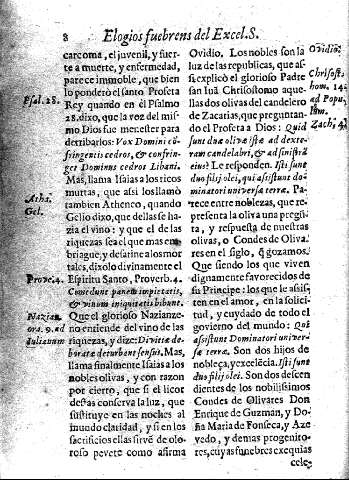 8 Elogios fuebrens del Excel.S.
carcoma, el juvenil, y fuer-
te a muerte, y enfermedad,
parece immoble, que bien
lo ponderò el santo Profeta
Rey quando en el Psalmo
28. dixo, que la voz del mis-
mo Dios fue menester para
derribarlos: Vox Domini cõ-
fringentis cedros, & confrin-
get Dominus cedros Libani.
Mas, llama Isaias a los ricos
murtas, que assi los llamò
tambien Atheneo, quando
Gelio dixo, que dellas se ha-
zia el vino: y que el de las
riquezas sea el que mas em
briague, y desatine a los mor
tales, dixolo divinamente el
Espiritu Santo, Proverb. 4.
Comedunt panem impietatis,
& vinum iniquitatis bibunt.
Que el glorioso Nazianze-
no entiende del vino de las
riquezas, y dize: Divitiæ de-
boratæ deturbent sensus. Mas,
llama finalmente Isaias a los
nobles olivas, y con razon
por cierto, que si el licor
destas conserva la luz, que
sustituye en las noches al
mundo claridad, y si en los
sacrificios ellas sirvẽ de olo-
roso pevete como afirma
Psal. 28.
Athe.
Gel.
Prove. 4.
Nazian.
ora. 9. ad
Iulianum
Ovidio. Los nobles son la
luz de las republicas, que as-
si explicò el glorioso Padre
san Iuã Chrisostomo aque-
llas dos olivas del candelero
de Zacarias, que preguntan-
do el Profeta a Dios: Quid
sunt duæ olivæ istæ ad dexte-
ram candelabri, & ad sinistrã
eius? Le responden. Isti sunt
duo filij olei, qui assistunt do-
minatori universæ terræ. Pa-
rece entre noblezas, que re-
presenta la oliva una pregũ-
ta, y respuesta de nuestras
olivas, o Condes de Oliva-
res en el siglo, q̃ gozamos.
Que siendo los que viven
dignamente favorecidos de
su Principe: los que le assis-
ten en el amor, en la solici-
tud, y cuydado de todo el
govierno del mundo: Qui
assistunt Dominatori univer-
sæ terræ. Son dos hijos de
nobleza, y excelẽcia. Isti sunt
duo filij olei. Son dos descen
dientes de los nobilissimos
Condes de Olivares Don
Enrique de Guzman, y Do-
ña Maria de Fonseca, y Aze
vedo, y demas progenito-
res, cuyas funebres exequias
cele-
Ovidio:
Chrisost.
hom. 14.
ad Popu.
Zach. 4.